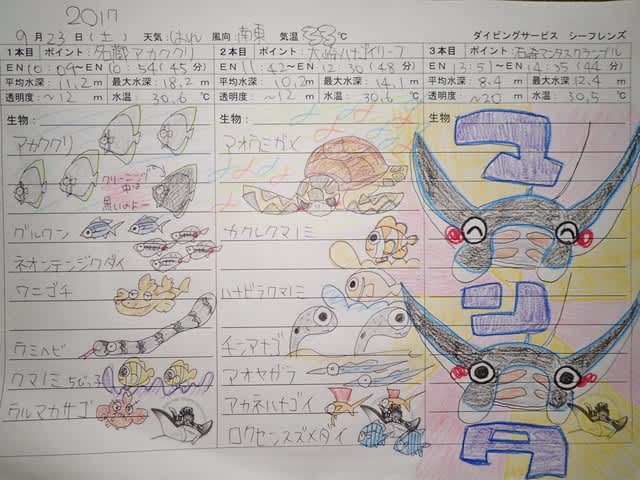 2017
9月23日(土) 天気:はれ 風向:南東 気温33℃ ダイビングサービス シーフレンズ
1本目 ポイント:名蔵アカククリ 2本目 ポイント:大崎ハナゴイリーフ 3本目 ポイント:石崎マンタスクランブル
EN 10:09〜EN 10:54(45分) EN 11:42〜EN 12:30(48分) EN 13:51〜EN 14:35(44分)
平均水深:11.2m 最大水深:18.2m 平均水深:10.2m 最大水深:14.1m 平均水深:8.4m 最大水深:12.4m
透明度:〜12m 水温 30.6℃ 透明度:〜12m 水温 30.6℃ 透明度:〜20m 水温 30.5℃
生物: 生物: 生物:
アカククリ
クリーニング
中は
黒いのよー
グルクン
ネオンテンジクダイ
ワニゴチ
ウミヘビ
クマノミちびっ子
ウルマカサゴ
アオウミガメ
カクレクマノミ
ハナビラクマノミ
チンアナゴ
アオヤガラ
アカネハナゴイ
ロクセンスズメダイ
コ
ン
タ